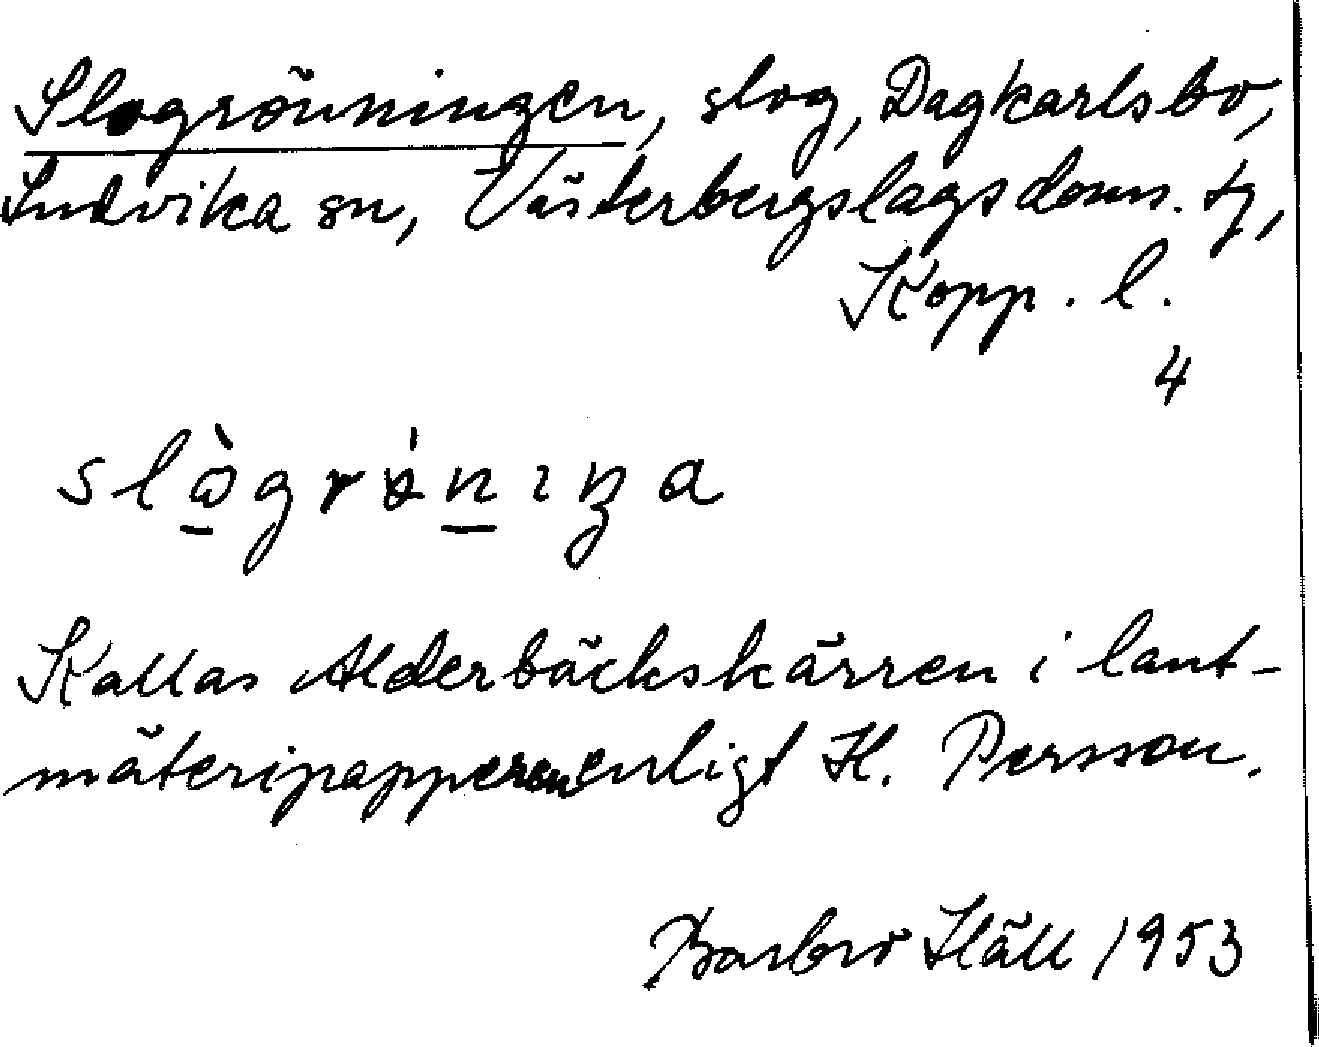 Slogrönningen, slog, Dagkarlsbo,
Ludvika sn, Västerbergslags doms. tg,
Kopp. l.
4
slὼ̱grɵ́n̲ıŋa
Kallas Alderbäckskärren i lant-
mäteripapperen enligt H. Persson.
Barbro Häll 1953